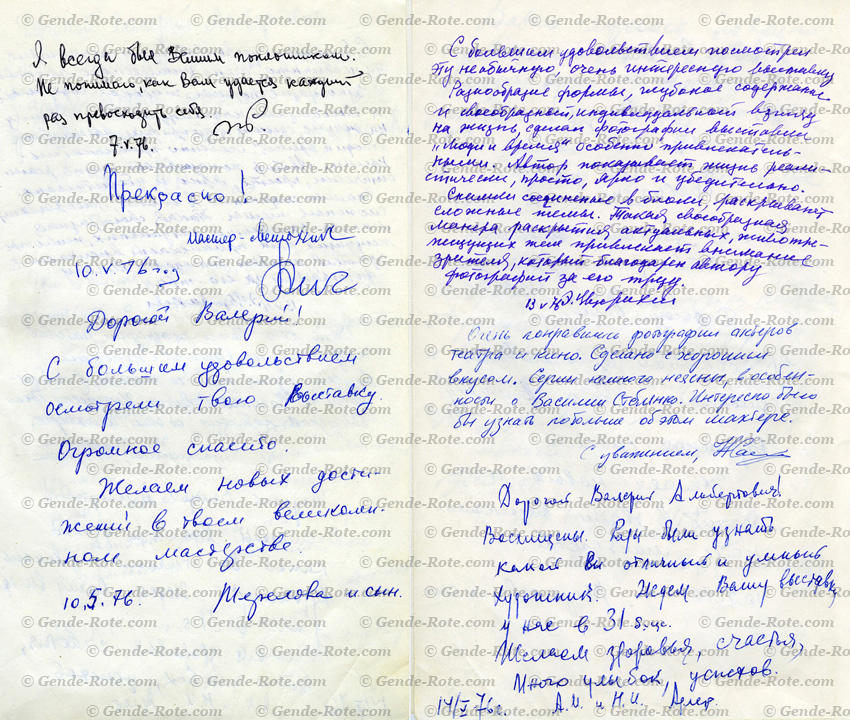 Я всегда был Вашим поклонником.
Не понимаю, как Вам удаётся каждый
раз превосходить себя
7.V.76.
Прекрасно!
10.V.76 год
Дорогой Валерий!
С большим удовольствием
осмотрели твою выставку.
Огромное спасибо.
Желаем новых дости-
жений в твоем великолеп-
ном мастерстве.
10.5.76. и сын.
С большим удовольствием посмотрел
эту необычную, очень интересную выставку
Разнообразие формы, глубокое содержание
и своеобразный, индивидуальный взгляд
на жизнь, сделал фотографии выставки
"Люди и время" особенно привлекатель-
ными. Автор показывает жизнь реали-
стически, просто, ярко и убедительно.
Снимки соединенные в блоки, раскрывают
сложные темы. Такая своеобразная
манера раскрытия актуальных, животре-
пещущих тем привлекает внимание
зрителя, который благодарен автору
фотографий за его труд.
13 V 76
Очень понравились фотографии актеров
театра и кино. Сделано с хорошим
вкусом. Серии немного неясны, в особен-
ности о Василии Интересно было
бы узнать побольше об этом шахтере.
С уважением,
Дорогой Валерий Альбертович!
Восхищены. Рады были узнать
какой Вы отличный и умный
Художник. Ждем Вашу выставку
у нас в 31
Желаем здоровья, счастья,
Много улыбок, успехов.
14/V 76г. А.И. и Н.И.
© Gende-Rote.com